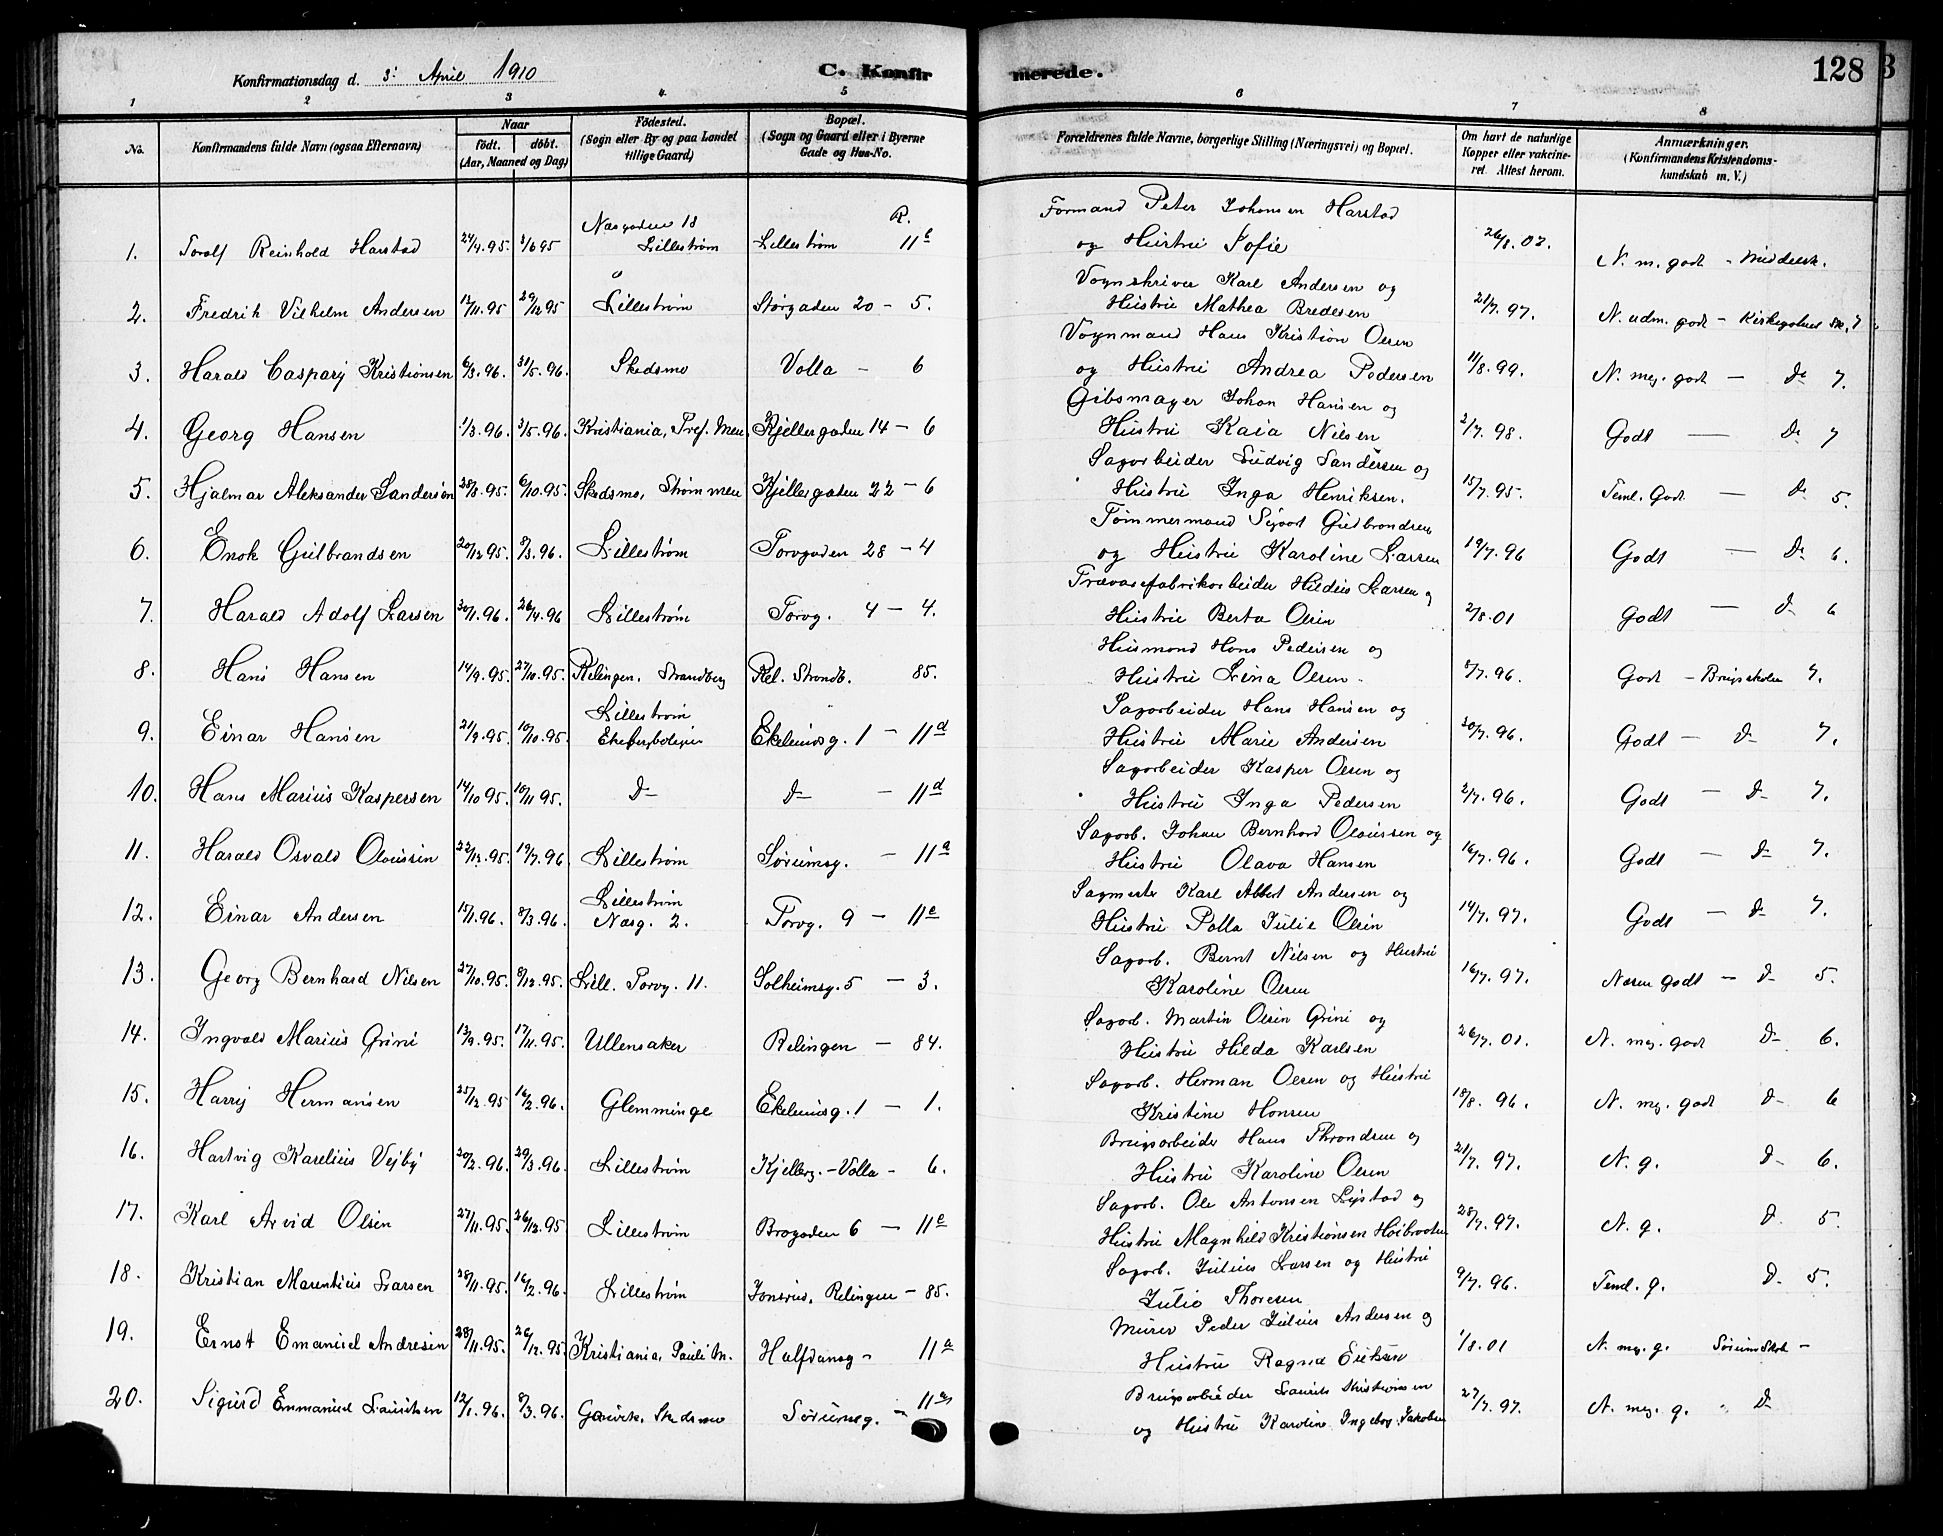 Konfirmationsdag d. 3. April 1910 C. Konfirmerede. 128
1 2 3 4 5 6 7 8
No. Konfirmandens fulde Navn (ogsaa Efternavn) Naar født. døbt. (Aar, Maaned og Dag) Fødested. (Sogn eller By og paa Landet tillige Gaard) Bopæl. (Sogn og Gaard eller i Byerne Gade og Hus-No. Forældrenes fulde Navne, borgerlige Stilling (Næringsvei) og Bopæl. Om havt de naturlige Kopper eller vakcineret Attest herom. Anmærkninger. (Konfirmandens Kristendomskundskab m. V.)
1. Torolf Reinhold Harstad 24/4.95. 1/6 95 Næsgaden 18 Lillestrøm Lillestrøm R. 11b Formand Peter Johansen Harstad og Hustru Sofie 26/8.02. N. m. godt - Middelsk.
2. Fredrik Vilhelm Andersen 12/11.95 29/12 95 Lillestrøm Storgaden 20 - 5. Vognskriver Karl Andersen og Hustru Mathea Bredesen 21/7.97. N. udm. godt - Kirkegadens Sk. 7
3. Harald Caspary Kristiansen 6/3.96. 31/5.96. Skedsmo Volla - 6 Vognmand Hans Kristian Olsen og Hustru Andrea Pedersen 11/8.99. N. meg. godt - Do 7.
4. Georg Hansen 1/3.96. 3/5.96. Kristiania, Pref. Men. Kjellergaden 14 - 6 Gibsmager Johan Hansen og Hustru Kaia Nilsen 2/7.98. Godt - Do 7
5. Hjalmar Aleksander Sandersen 28/8.95. 6/10.95. Skedsmo, Strømmen Kjellergaden 22 - 6 Sagarbeider Ludvig Sandersen og Hustru Inga Henriksen. 15/7.95. Teml. Godt - Do 5.
6. Enok Gulbrandsen 20/12 95. 8/3.96. Lillestrøm Torvgaden 28 - 4 Tømmermand Sivert Gulbrandsen og Hustru Karoline Larsen 19/7.96 Godt - Do 6.
7. Harald Adolf Larsen 30/1.96. 26/4.96 Lillestrøm Torvg. 4 - 4. Trævarefabrikarbeider Larsen og Hustru Berta Olsen 2/8.01 Godt - Do 6
8. Hans Hansen 14/9.95. 27/10.95. Relingen. Strandberg Rel. Strandb. 85. Husmand Hans Pedersen og Hustru Lina Olsen. 8/7.96. Godt - Brugsskolen 7.
9. Einar Hansen 21/9.95. 10/10.95. Lillestrøm Ekebergboliger Ekelundsg. 1 - 11d Sagarbeider Hans Hansen og Hustru Marie Andersen 20/7.96. Godt - Do 7.
10. Hans Marius Kaspersen 14/10 95. 10/11 95. Do Do - 11d Sagarbeider Kasper Olsen og Hustru Inga Pedersen 2/7.96. Godt - Do 7.
11. Harald Osvald Olaussen 22/12.95. 19/7.96. Lillestrøm Sørumsg. - 11a Sagarb. Johan Bernhard Olaussen og Hustru Olava Hansen 16/7.96. Godt - Do 7.
12. Einar Andersen 15/1.96. 8/3.96. Lillestrøm Næsg. 2. Torvg. 9 - 11e Sagmester Karl Albert Andersen og Hustru Palla Julie Olsen 14/7.97. Godt - Do 7.
13. Georg Bernhard Nilsen 27/10.95. 8/12.95. Lill. Torvg. 11. Solheimsg. 5 - 3. Sagarb. Bernt Nilsen og Hustru Karoline Olsen 16/7.97. Næsten godt - Do 5.
14. Ingvald Marius Grini 13/9.95. 17/11.95. Ullensaker Relingen - 84. Sagarb. Martin Olsen Grini og Hustru Hilda Karlsen 26/7.01. N. meg. godt Do 6.
15. Harry Hermansen 25/12.95 16/2.96. Glemminge Ekelundsg. 1 - 1. Sagarb. Herman Olsen og Hustru Kristine Hansen 18/8.96. N. meg. godt Do 6
16. Hartvig Karelius Vejby 20/2.96. 29/3.96. Lillestrøm Kjellerg. - Volla - 6. Brugsarbeider Hans Throndsen og Hustru Karoline Olsen 21/7.97. N. g. Do 6.
17. Karl Arvid Olsen 27/11.95. 26/12.95 Lillestrøm Brogaden 6 - 11e Sagarb. Ole Antonsen Lystad og Hustru Magnhild Kristiansen Høibraaten 28/7.97. N. g. Do 5.
18. Kristian Marentius Larsen 28/11.95. 16/2.96. Lillestrøm Jonsrud, Relingen - 85. Sagarb. Julius Larsen og Hustru Julie Thoresen 9/7.96. Teml. g. Do 5.
19. Ernst Emanuel Andresen 28/11.95. 26/12.95. Kristiania, Pauli Mn. Halfdansg - 11a Murer Peder Julius Andersen og Hustru Ragna Eriksen 1/8.01 N. meg. g. Sørum Skole -
20. Sigurd Emmanuel Lauritsen 12/1.96. 8/3.96. Skedsmo Sørumsg. - 11a Brugsarbeider Laurits Kristiansen og Hustru Karoline Ingeborg Jakobsen 27/7.97. N. meg. g. Do